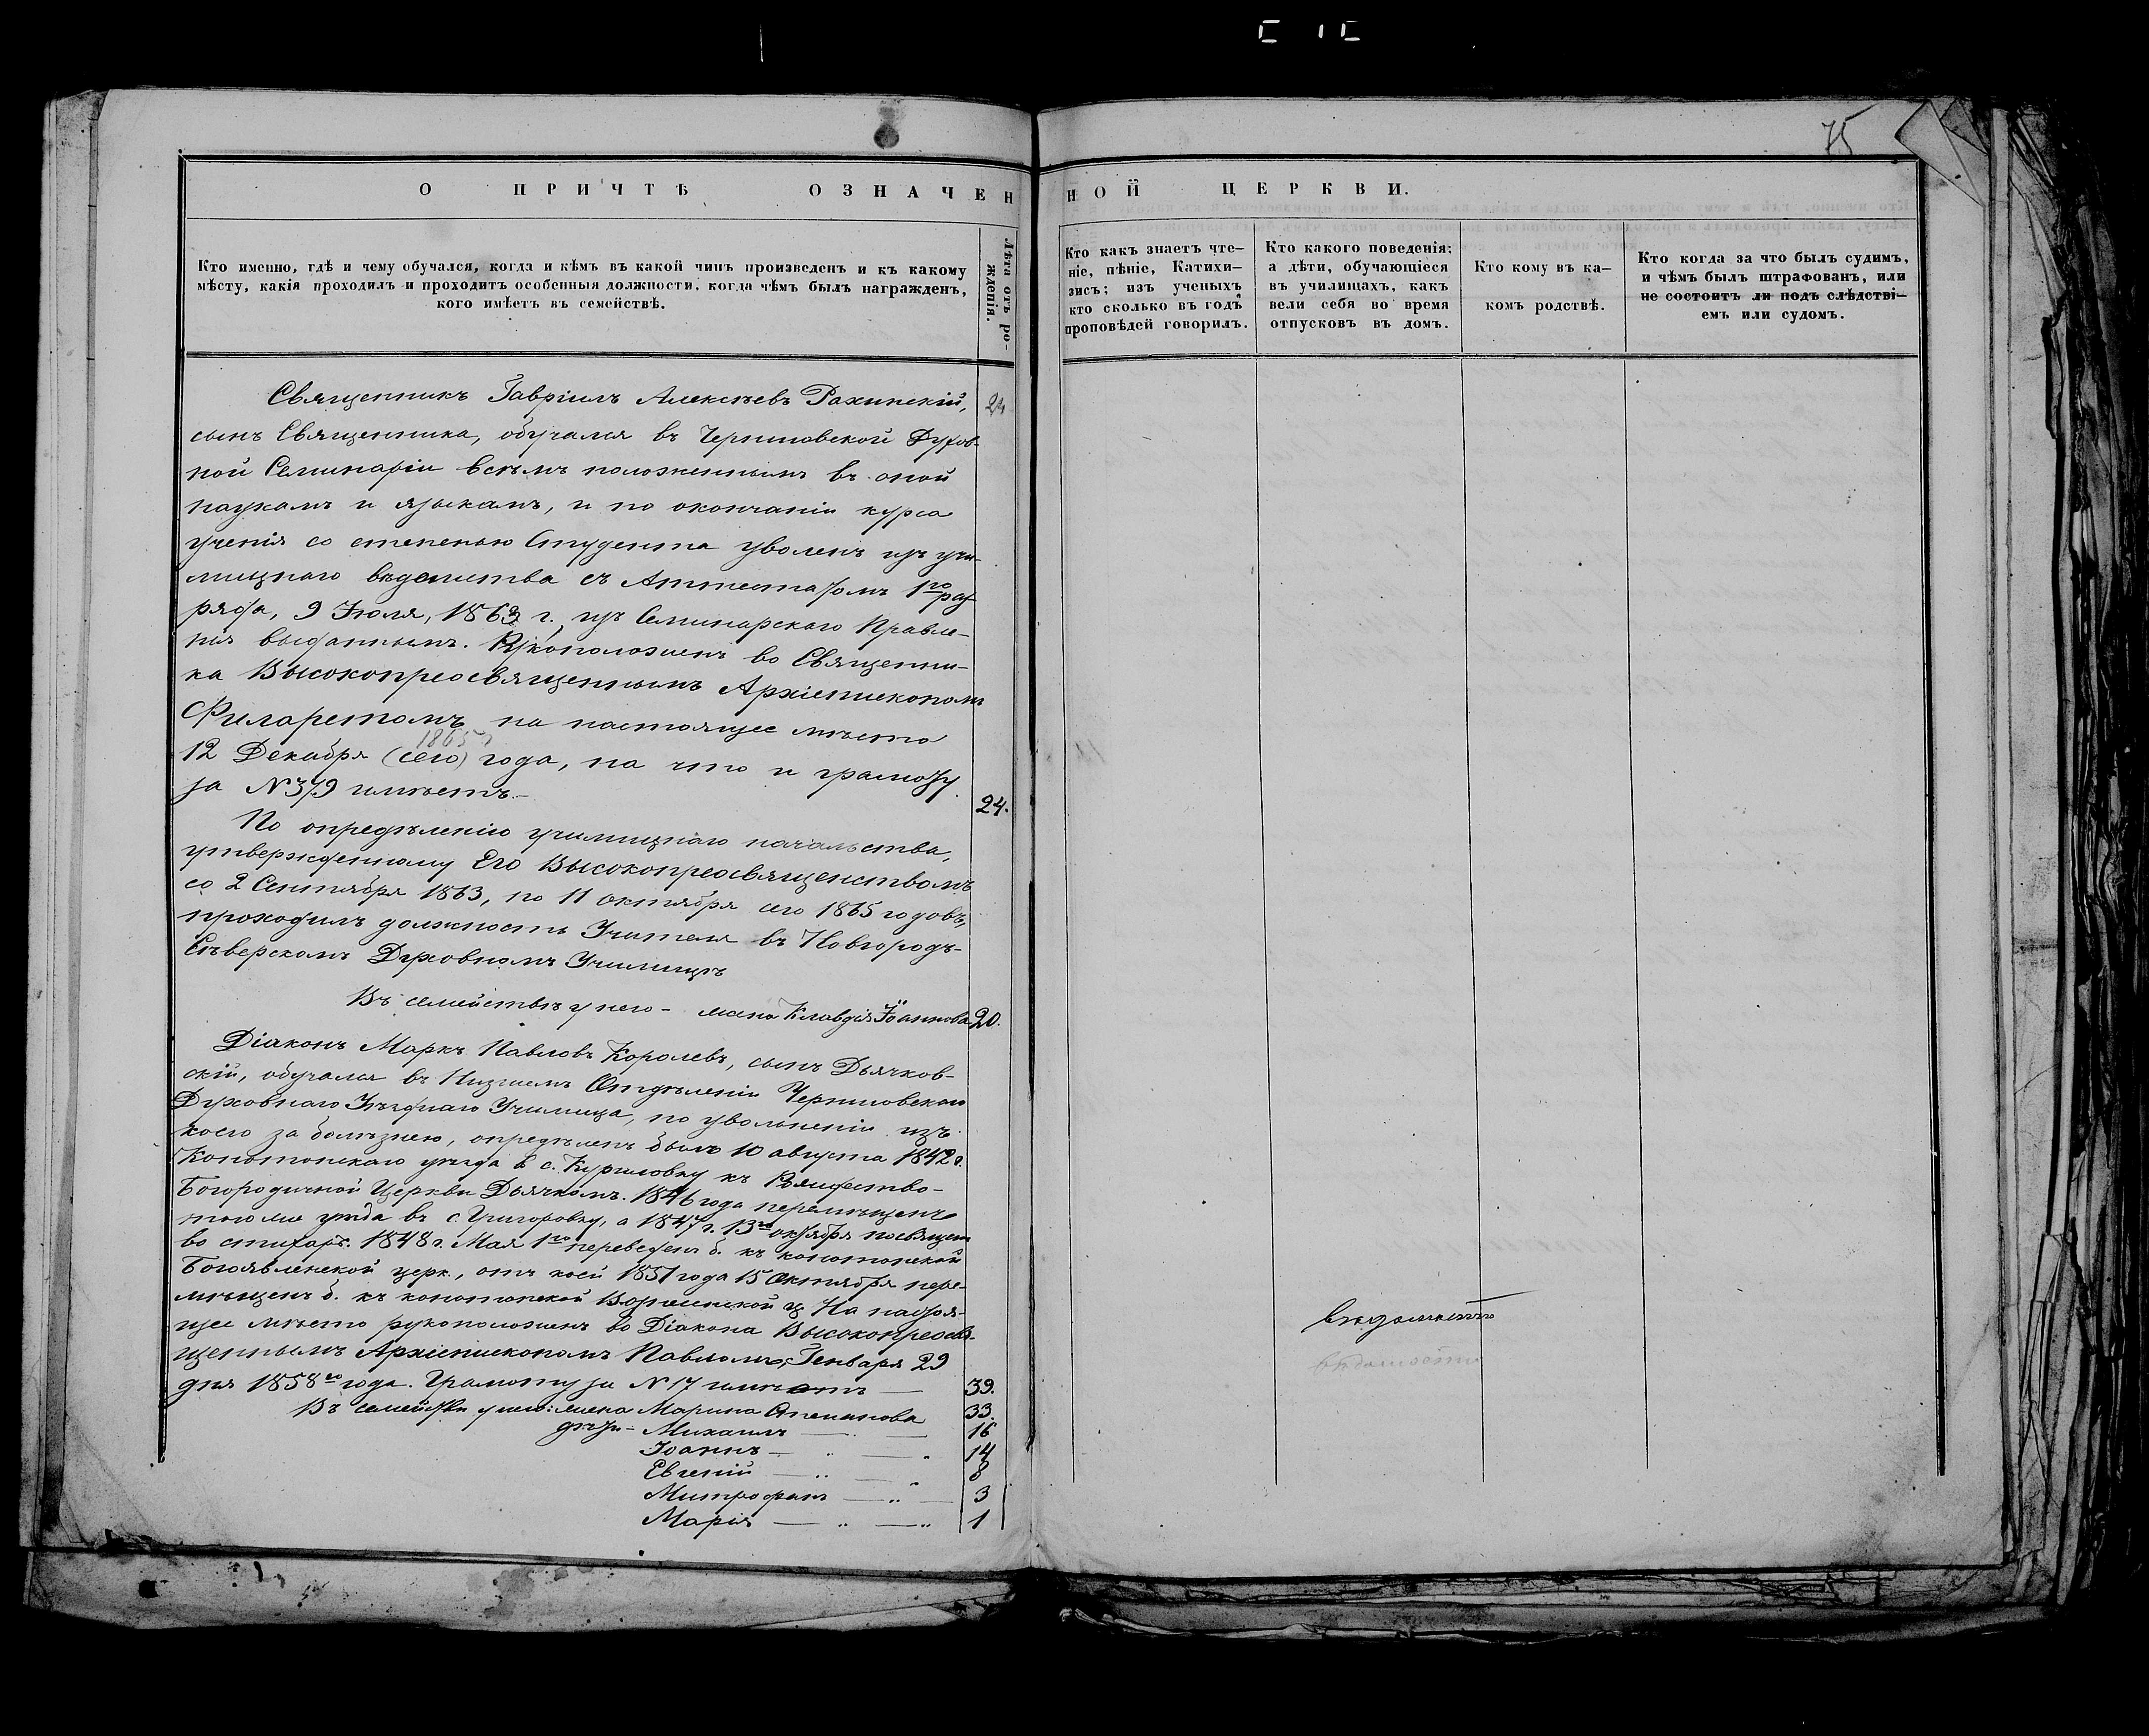 75
О ПРИЧТѢ ОЗНАЧЕН
НОЙ ЦЕРКВИ.
Кто именно, гдѣ и чему обучался, когда и кѣмъ въ какой чинъ произведенъ и къ какому
мѣсту, какія проходилъ и проходитъ особенныя должности, когда чѣмъ былъ награжденъ,
кого имѣетъ въ семействѣ.
Лѣта отъ ро-
жденія.
Кто какъ знаетъ чте-
ніе, пѣніе, Катихи-
зисъ; изъ ученыхъ
кто сколько въ годъ
проповѣдей говорилъ.
Кто какого поведенія;
а дѣти, обучающіеся
въ училищахъ, какъ
вели себя во время
отпусковъ въ домъ.
Кто кому въ ка-
комъ родствѣ.
Кто когда за что былъ судимъ,
и чѣмъ былъ штрафованъ, или
не состоитъ ли подъ слѣдстві-
емъ или судомъ.
Священникъ Гавріилъ Алексѣевъ Рахинскій, 24
сынъ Священника, обучался въ Черниговской Духов-
ной Семинаріи всѣмъ положеннымъ въ оной
наукамъ и языкамъ, и по окончаніи курса
ученія со степенью Студента уволенъ изъ учи-
лищнаго вѣдомства съ Аттестатомъ 1го раз-
ряда, 9 Іюля, 1863 г. изъ Семинарскаго Правле-
нія выданнымъ. Рукоположенъ во Священни-
ка Высокопреосвященнымъ Архіепископомъ
Филаретомъ на настоящее мѣсто
1865
12 Декабря (сего) года, на что и грамоту
за N 379 имѣетъ.— 24.
По опредѣленію училищнаго начальства,
утвержденному Его Высокопреосвященствомъ
со 2 Сентября 1863, по 11 октября сего 1865 годовъ,
проходилъ должность Учителя въ Новгородъ-
Сѣверскомъ Духовномъ Училищѣ
Въ семействѣ у него - жена Клавдія Іоаннова 20.
Діаконъ Маркъ Павловъ Королевъ, сынъ Дьячков-
скій, обучался въ Низшемъ Отдѣленіи Черниговскаго
Духовнаго Уѣзднаго Училища, по увольненіи изъ
коего за болѣзнею, опредѣленъ былъ 10 августа 1842 г.
Конотопскаго уѣзда в с. Куриловку къ Рождество-
Богородичной Церкви Дьячкомъ. 1846 года перемѣщенъ
того же уѣзда въ с. Григоровку, а 1847 г. 13го октября посвященъ
во стихарь. 1848 г. Мая 1го переведенъ б. къ конотопской
Богоявленской церк., отъ коей 1851 года 15 Октября пере-
мѣщенъ б. къ конотопской Вознесенской ц. На настоя-
щее мѣсто рукоположенъ во Діакона Высокопреосвя-
щеннымъ Архіепископомъ Павломъ, Генваря 29
дня 1858го года. Грамоту за N 17 имѣетъ — 39.
Въ семействѣ у него: жена Марина Степанова 33.
дѣти - Михаилъ — 16
Іоаннъ — 14
Евгеній — 8
Митрофанъ — 3
Марія — 1
вѣдомость
вѣдомости